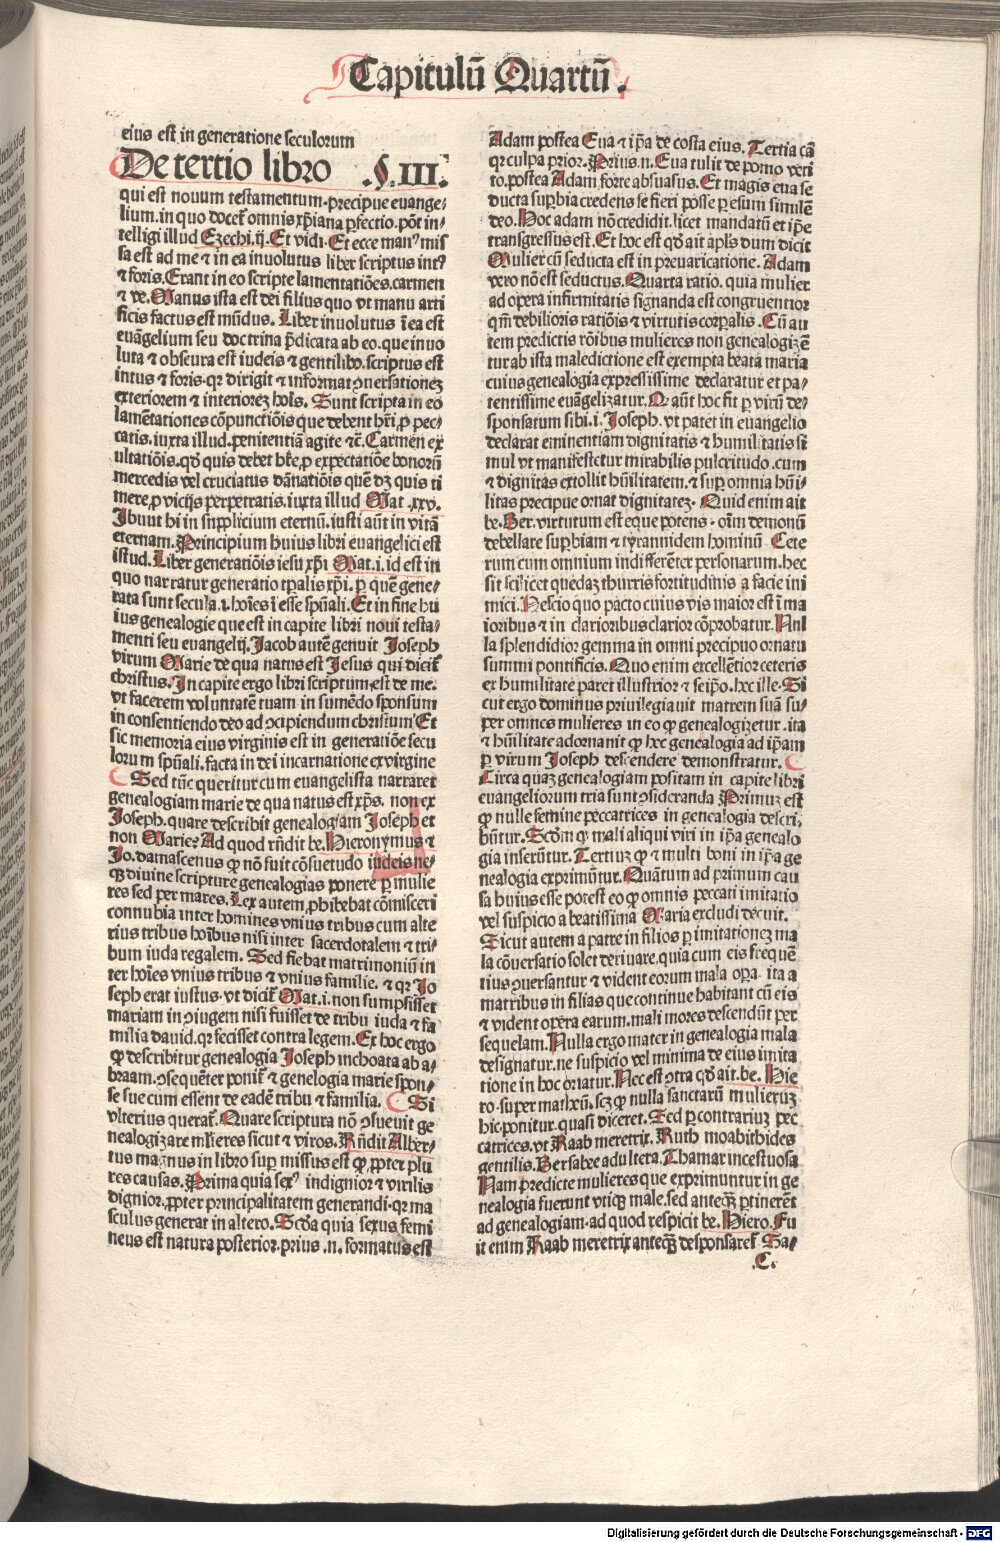 Capitulū Quartū.
eius est in generatione seculorum
De tertio libro .§.III.
qui est nouum testamentum. precipue euange⸗
lium. in quo docet omnis xp̄iana pfectio. pōt in⸗
telligi illud Ezechi.ij. Et vidi. Et ecce man⁹ mis
sa est ad me ⁊ in ea inuolutus liber scriptus int⁹
⁊ foris. Erant in eo scripte lamentatiōes. carmen
⁊ ve. Manus ista est dei filius quo vt manu arti
ficis factus est mūdus. Liber inuolutus ī ea est
euāgelium seu doctrina p̄dicata ab eo. que inuo
luta ⁊ obscura est iudeis ⁊ gentilibꝫ. scriptus est
intus ⁊ foris. qꝛ dirigit ⁊ informat ꝯuersationeꝫ
exteriorem ⁊ interioreꝫ hoīs. Sunt scripta in eo
lamētationes cōpunctiōis que debent hr̄i. p pec⸗
catis. iuxta illud. penitentiā agite ⁊c̄. Carmen ex
ultatiōis. qd̄ quis debet hr̄e. p expectatiōe bonorū
mercedis vel cruciatus dānatiōis quē dꝫ quis ti
mere. p vicijs perpetratis. iuxta illud Mat .xxv.
Ibunt hi in supplicium eternū. iusti aūt in vitā
eternam. Principium huius libri euangelici est
istud. Liber generatiōis iesu xp̄i Mat.i. id est in
quo narratur generatio tpalis xp̄i. p quē gene⸗
rata sunt secula. i. hoīes ī esse spūali. Et in fine hu
ius genealogie que est in capite libri noui testa⸗
menti seu euangelij. Jacob autē genuit Joseph
virum Marie de qua natus est Jesus qui dicit̄
christus. In capite ergo libri scriptum est de me.
vt facerem voluntatē tuam in sumēdo sponsum
in consentiendo deo ad ꝯcipiendum christum Et
sic memoria eius virginis est in generatiōe secu
lorum spūali. facta in dei incarnatione ex virgine
Sed tūc queritur cum euangelista narraret
genealogiam marie de qua natus est xp̄s. non ex
Joseph. quare describit genealogiam Joseph et
non Marie? Ad quod rn̄dit be. Hieronymus ⁊
Jo. damascenus ꝙ nō fuit cōsuetudo iudeis ne⸗
qꝫ diuine scripture genealogias ponere p mulie
res sed per mares. Lex autem phibebat cōmisceri
connubia inter homines vnius tribus cum alte
rius tribus hoībus nisi inter sacerdotalem ⁊ tri⸗
bum iuda regalem. Sed fiebat matrimoniū in
ter hoīes vnius tribus ⁊ vnius familie. ⁊ qꝛ Jo
seph erat iustus. vt dicit̄ Mat.i. non sumpsisset
mariam in ꝯiugem nisi fuisset de tribu iuda ⁊ fa
milia dauid. qꝛ fecisset contra legem. Ex hoc ergo
ꝙ describitur genealogia Joseph inchoata ab a⸗
braam. ꝯsequēter ponit̄ ⁊ genelogia marie spon⸗
se sue cum essent de eadē tribu ⁊ familia. Si
vlterius querat̄. Quare scriptura nō ꝯsueuit ge
nealogizare ml̄ieres sicut ⁊ viros. Rn̄dit Alber⸗
tus magnus in libro sup missus est ꝙ. ppter plu
res causas. Prima quia sex⁹ indignior ⁊ virilis
dignior. ppter principalitatem generandi. qꝛ ma
sculus generat in altero. Scd̄a quia sexus femi
neus est natura posterior. prius .n. formatus est
Adam postea Eua ⁊ ip̄a de costa eius. Tertia cā
qꝛ culpa prior. Prius .n. Eua tulit de pomo veti
to. postea Adam forte abluasus. Et magis eua se
ducta supbia credens se fieri posse p esum similē
deo. Hoc adam nō credidit. licet mandatū et ip̄e
transgressus est. Et hoc est qd̄ ait apl̄s dum dicit
Mulier cū seducta est in preuaricatione. Adam
vero nō est seductus. Quarta ratio. quia mulier
ad opera infirmitatis signanda est congruentior
qm̄ debilioris ratiōis ⁊ virtutis corpalis. Cū au
tem predictis rōibus mulieres non genealogizē
tur ab ista maledictione est exempta beata maria
cuius genealogia expressissime declaratur et pa⸗
tentissime euāgelizatur. Q. aūt hoc fit p virū de⸗
sponsatum sibi. i. Joseph. vt patet in euangelio
declarat eminentiam dignitatis ⁊ humilitatis si
mul vt manifestetur mirabilis pulcritudo. cum
⁊ dignitas extollit hūilitatem. ⁊ sup omnia hūi⸗
litas precipue ornat dignitateꝫ. Quid enim ait
be. Ber. virtutum est eque potens. oīm demonū
debellare supbiam ⁊ tyrannidem hominū Cete
rum cum omnium indifferēter personarum. hec
sit scilicet quedaꝫ thurris fortitudinis a facie ini
mici. Nescio quo pacto cuius vis maior est ī ma
ioribus ⁊ in clarioribus clarior cōprobatur. Nul
la splendidior gemma in omni precipuo ornatu
summi pontificis. Quo enim excellētior ceteris
ex humilitate paret illustrior ⁊ seipo. hec ille. Si
cut ergo dominus priuilegiauit matrem suā su⸗
per omnes mulieres in eo ꝙ genealogizetur. ita
⁊ hūilitate adornauit ꝙ hec genealogia ad ip̄am
p virum Joseph descendere demonstratur.
Circa quaꝫ genealogiam positam in capite libri
euangeliorum tria sunt ꝯsideranda Primuꝫ est
ꝙ nulle femine peccatrices in genealogia descri⸗
būtur. Scd̄m ꝙ mali aliqui viri in ip̄a genealo⸗
gia inserūtur. Tertiuꝫ ꝙ ⁊ multi boni in ip̄a ge
nealogia exprimūtur. Quātum ad primum cau
sa huius esse potest eo ꝙ omnis peccati imitatio
vel suspicio a beatissima Maria excludi decuit.
Sicut autem a patre in filios p imitationeꝫ ma
la cōuersatio solet deriuare. quia cum eis frequē
tius ꝯuersantur ⁊ vident eorum mala opa. ita a
matribus in filias que continue habitant cū eis
⁊ vident opera earum. mali mores descendūt per
sequelam. Nulla ergo mater in genealogia mala
designatur. ne suspicio vel minima de eius imita
tione in hoc oriatur. Nec est ꝯtra qd̄ ait. be. Hie
ro. super matheū. scꝫ ꝙ nulla sanctarū mulieruꝫ
hic ponitur. quasi diceret. Sed p contrariuꝫ pec
catrices. vt Raab meretrix. Ruth moabithides
gentilis. Bersabee adultera. Thamar incestuosa
Nam predicte mulieres que exprimuntur in ge
nealogia fuerunt vtiqꝫ male. sed anteqꝫ ptinerēt
ad genealogiam. ad quod respicit be. Hiero. Fu
it enim Raab meretrix anteqꝫ desponsaret̄ Sa⸗
.C.
Digitalisierung gefördert durch die Deutsche Forschungsgemeinschaft - DFG